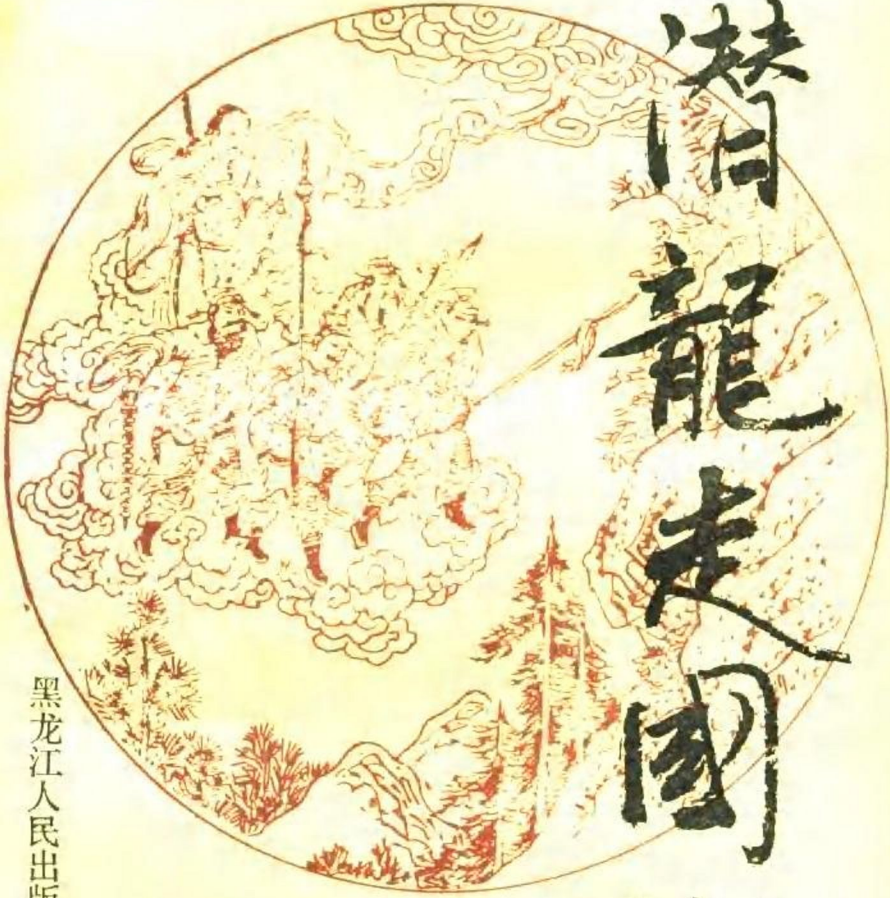 潜龍走國
黑龙江人民出版